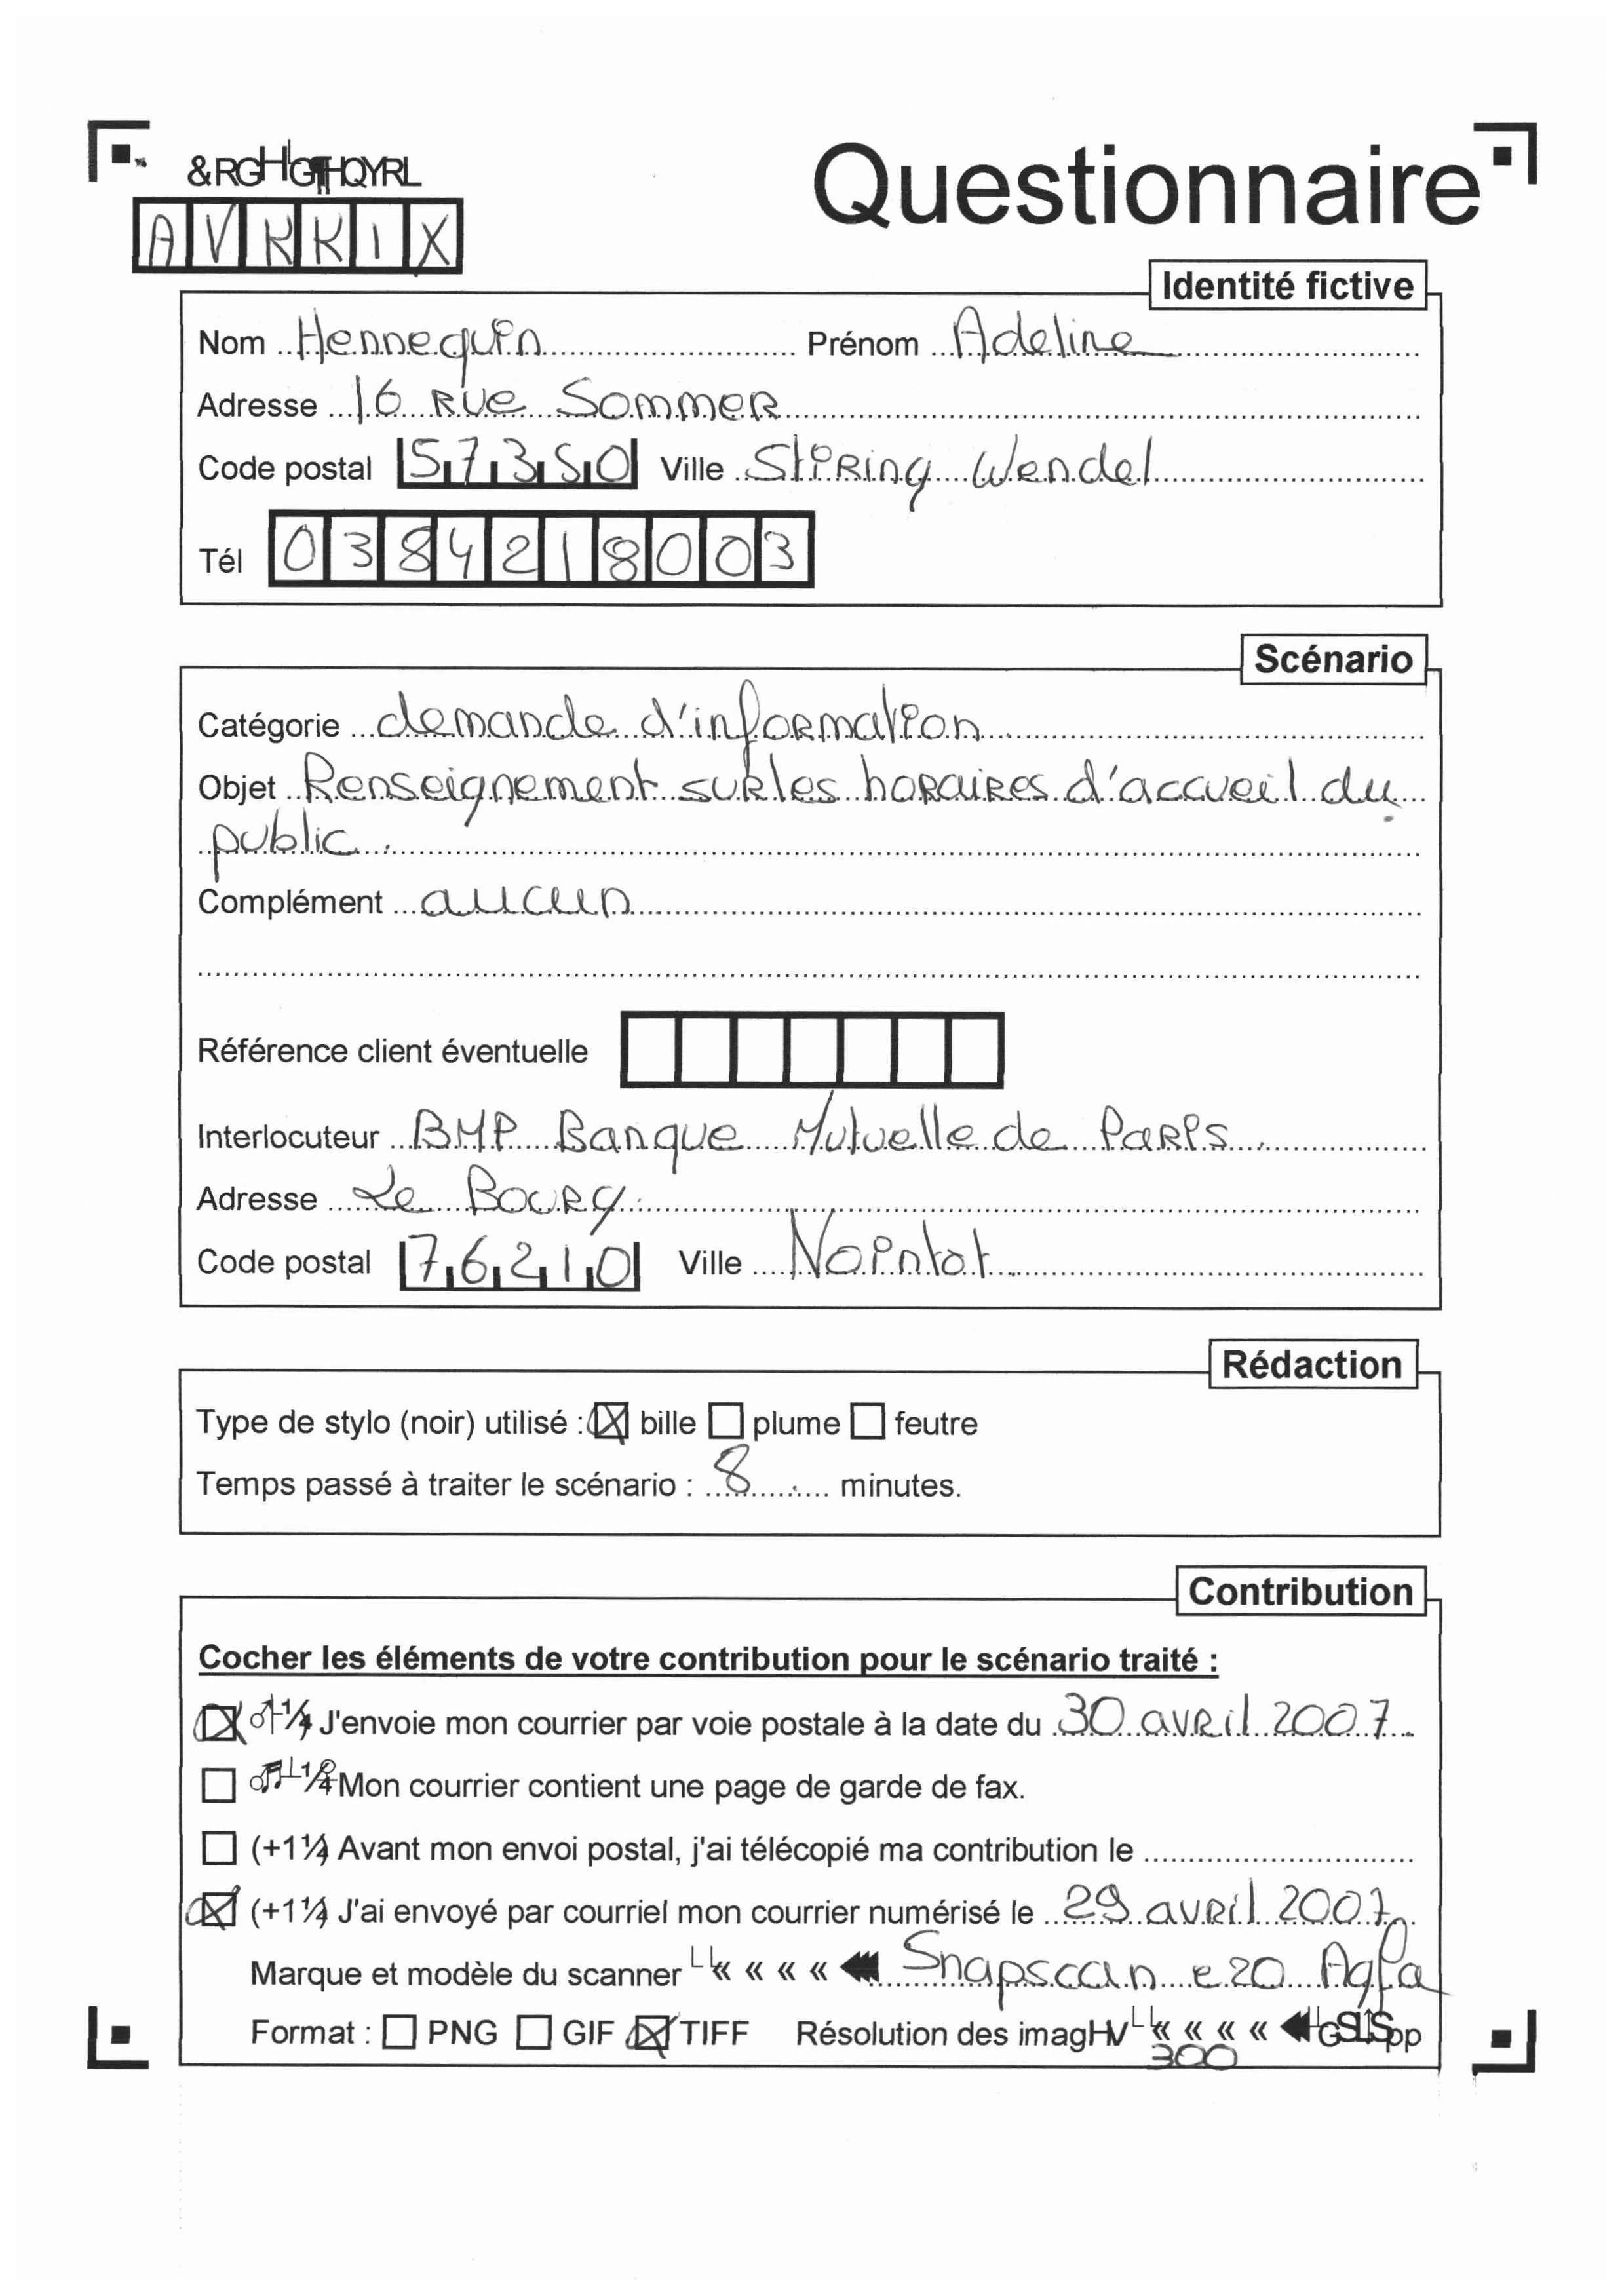 &RGHGHQYRL
Questionnaire
AVKKIX
Identité fictive
Nom Hennequin Prénom Adeline
Adresse 16 Rue Sommer
Code postal 57350 Ville Stiring Wendel
Tél 0384218003
Scénario
Catégorie demande d'information
Objet Renseignement sur les horaires d'accueil du
public.
Complément aucun
Référence client éventuelle
Interlocuteur BMP Banque Mutuelle de Paris.
Adresse Le Bourg
Code postal 76210 Ville Nointot
Rédaction
Type de stylo (noir) utilisé : bille plume feutre
Temps passé à traiter le scénario : 8 minutes.
Contribution
Cocher les éléments de votre contribution pour le scénario traité :
J'envoie mon courrier par voie postale à la date du 30 avril 2007
Mon courrier contient une page de garde de fax.
(+1¼ Avant mon envoi postal, j'ai télécopié ma contribution le
(+1¼ J'ai envoyé par courriel mon courrier numérisé le 29 avril 2007
Marque et modèle du scanner « « « « Snapscan e20 Agfa
Format : PNG GIF TIFF Résolution des imagHV « « « « pp
300